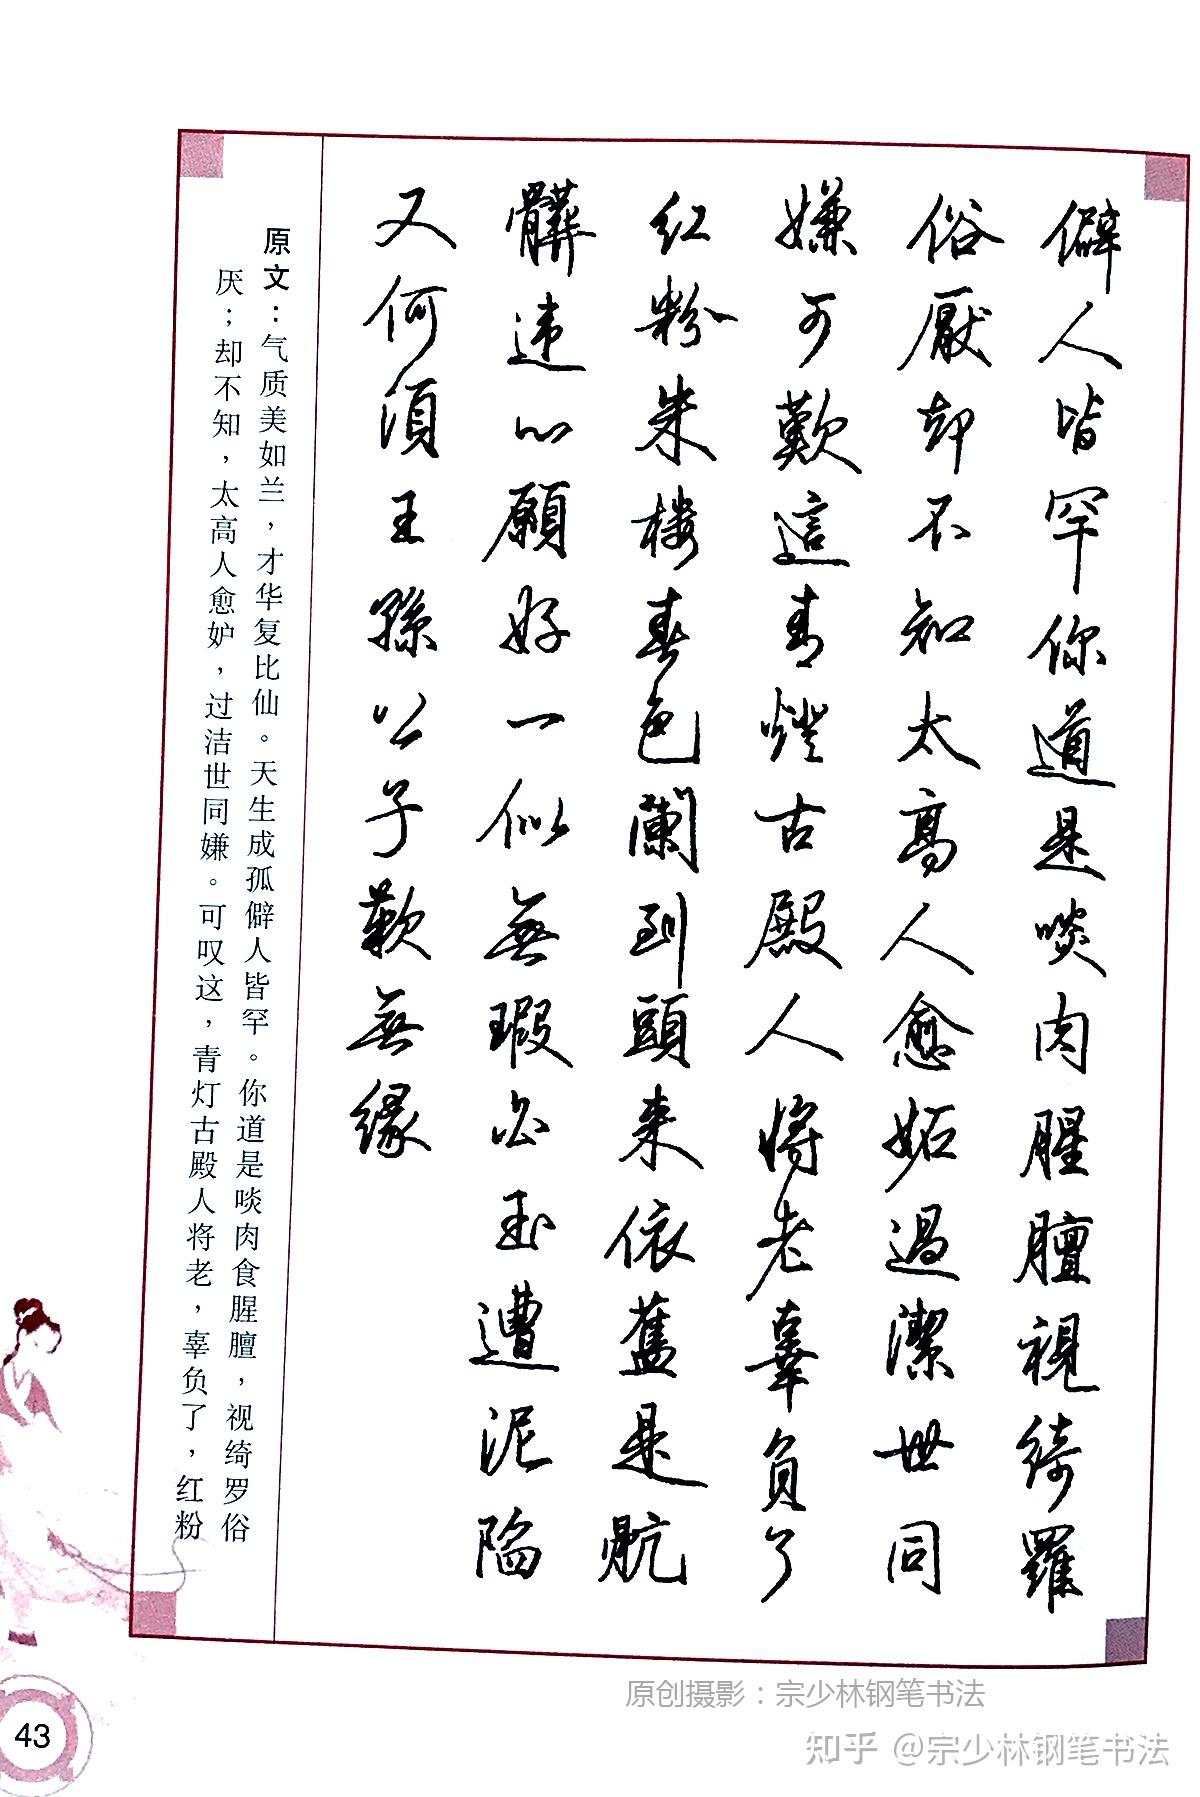 僻人皆罕你道是啖肉腥膻視綺羅
俗厭却不知太高人愈妬過潔世同
嫌可歎這青燈古殿人將老辜負了
红粉朱楼春色闌到頭来依舊是骯
髒违心願好一似無瑕白玉遭泥陷
又何須王孫公子歎無缘
原文：气质美如兰，才华复比仙。天生成孤僻人皆罕。你道是啖肉食腥膻，视绮罗俗
厌；却不知，太高人愈妒，过洁世同嫌。可叹这，青灯古殿人将老，辜负了，红粉
43
原创摄影：宗少林钢笔书法
知乎 @宗少林钢笔书法